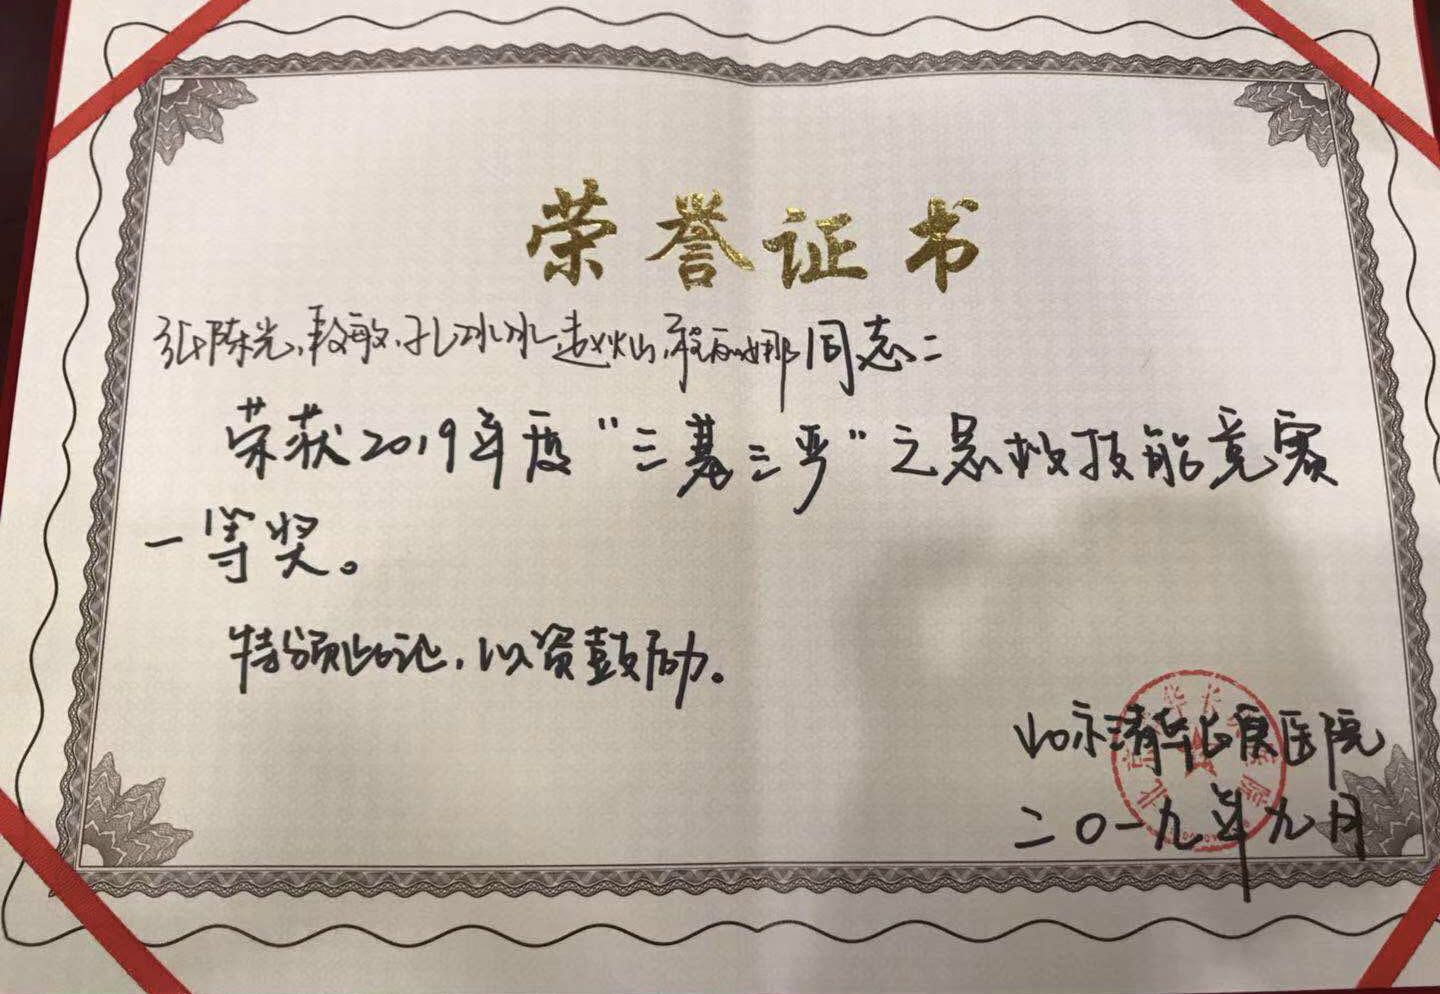 荣誉证书
张陈光、段敏、孔冰冰、赵灿、程丽娜同志：
荣获2019年度“三基三严”之急救技能竞赛
一等奖。
特颁此证，以资鼓励。
北京清华长庚医院
二〇一九年九月